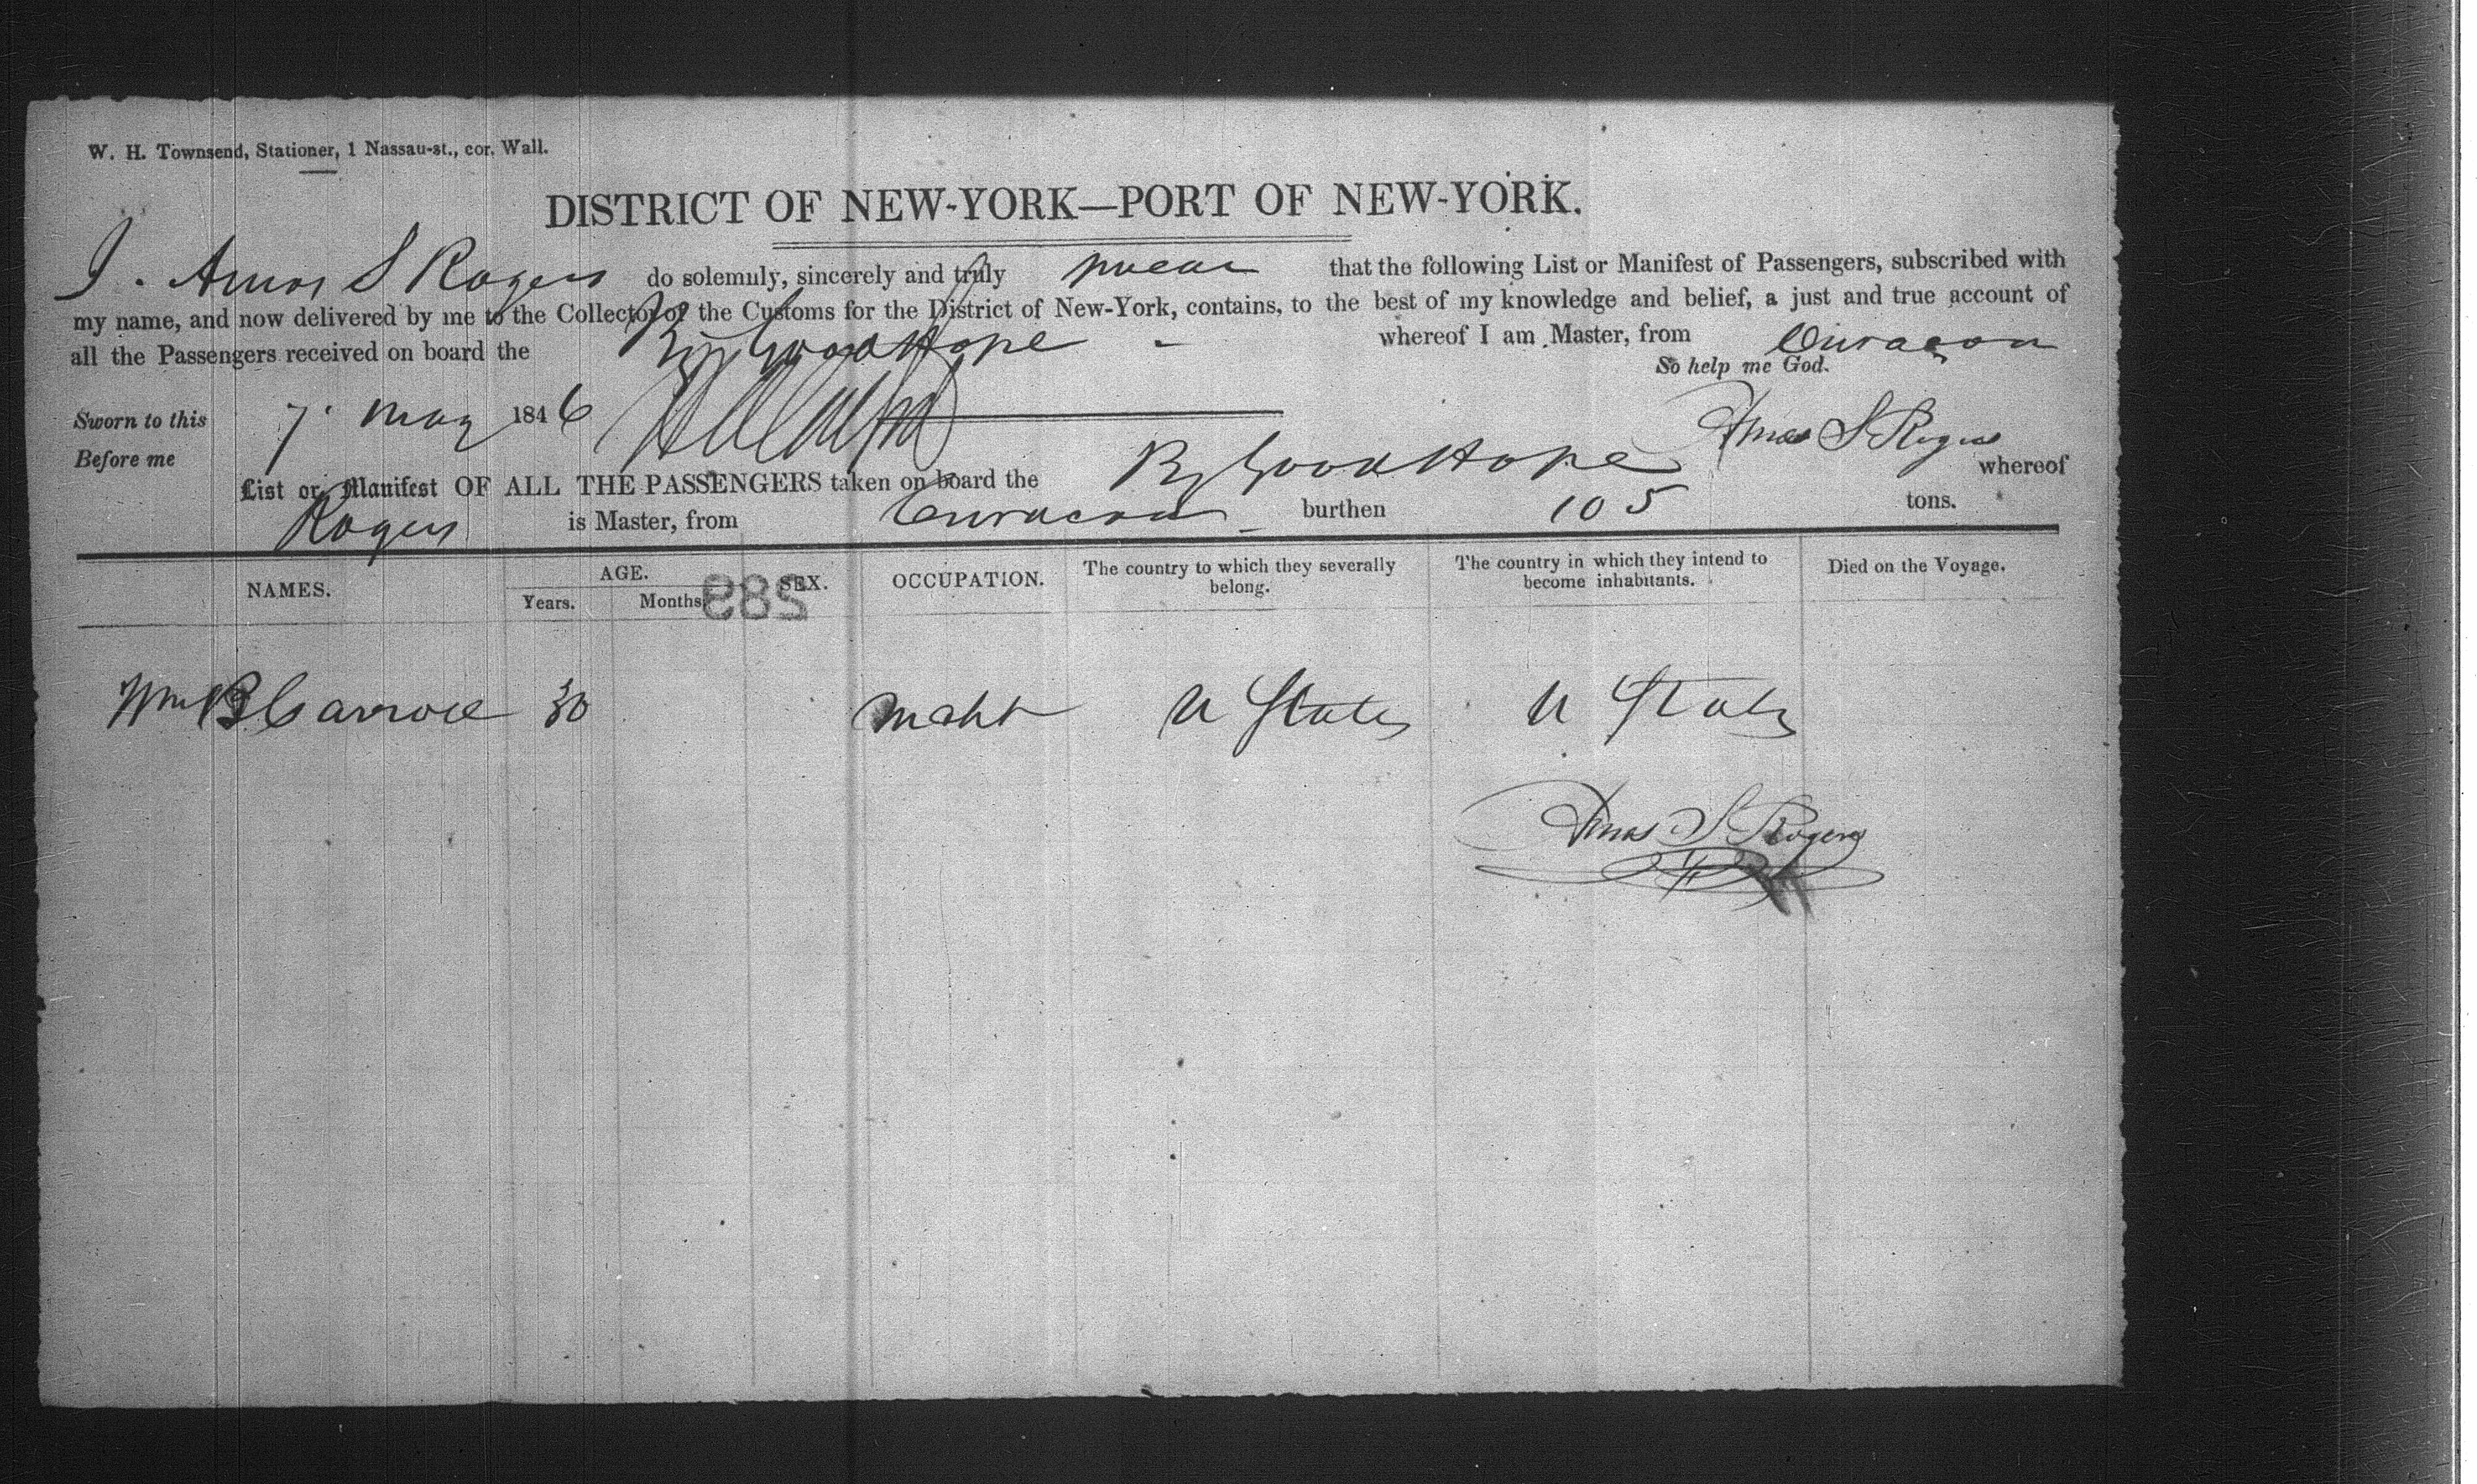 W. H. Townsend, Stationer, 1 Nassau-st., cor. Wall.
DISTRICT OF NEW-YORK—PORT OF NEW-YORK.
I. Amos S Rogers do solemnly, sincerely and truly swear that the following List or Manifest of Passengers, subscribed with
my name, and now delivered by me to the Collector of the Customs for the District of New-York, contains, to the best of my knowledge and belief, a just and true account of
all the Passengers received on board the Brig Good Hope whereof I am Master, from Curacoa
So help me God.
Sworn to this 7. May 1846 Amos S Rogers
Before me
List or Manifest OF ALL THE PASSENGERS taken on board the Brig Good Hope whereof
Rogers is Master, from Curacoa burthen 105 tons.
NAMES. AGE. SEX. OCCUPATION. The country to which they severally belong. The country in which they intend to become inhabitants. Died on the Voyage.
Years. Months.
289
Wm B Carroll 30 Mcht U States U States
Amos S Rogers